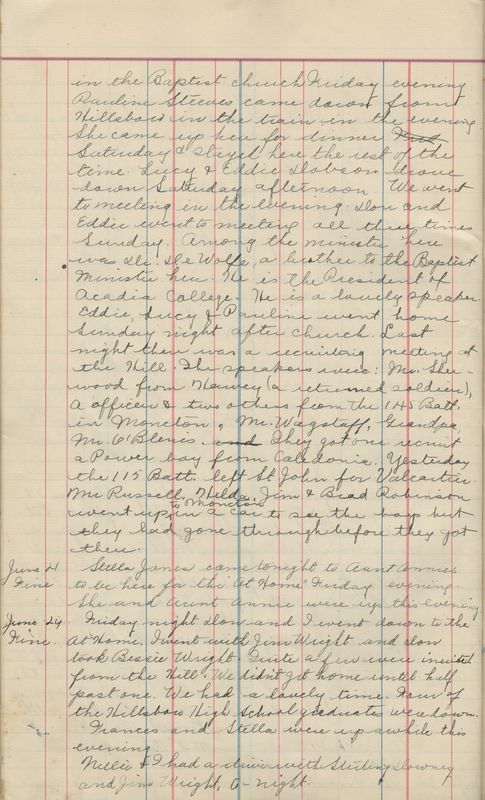 in the Baptist church Friday evening
Pauline Steeves came down from
Hillsboro in the train in the evening
She came up here for dinner
Saturday & stayed here the rest of the
time. Lucy & Eddie Dobson drove
down Saturday afternoon. We went
to meeting in the evening. Don and
Eddie went to meeting all three times
Sunday. Among the ministers here
was Dr. DeWolfe, a brother to the Baptist
Minister here. He is the President of
Acadia College. He is a lovely speaker.
Eddie, Lucy & Pauline went home
Sunday night after church. Last
night there was a recruiting meeting at
the Hill. The speakers were: Mr. Sher-
wood from Harvey (a returned soldier),
A officer & two others from the 145 Batt.
in Moncton, Mr. Wagstaff, Grandpa,
Mr. O'Blenis. and They got one recruit
a Power boy from Caledonia. Yesterday
the 115 Batt. left St John for Valcartier.
Mr Russell, Hilda, Jim & Brad Robinson
went up to Moncton in a car to see the boys but
they had gone through before they got
there.
June 21 Stella Jones came tonight to Aunt Annie's
Fine to be here for the "At Home" Friday evening.
She and Aunt Annie were up this evening
June 24 Friday night Don and I went down to the
Fine. At Home. I went with Jim Wright and Don
took Bessie Wright. Quite a few were invited
from the Hill. We didn't get home until half
past one. We had a lovely time. Four of
the Hillsboro High School graduates were down.
Frances and Stella were up awhile this
evening
Nellie & I had a drive with Sterling Downey
and Jim Wright, to-night.